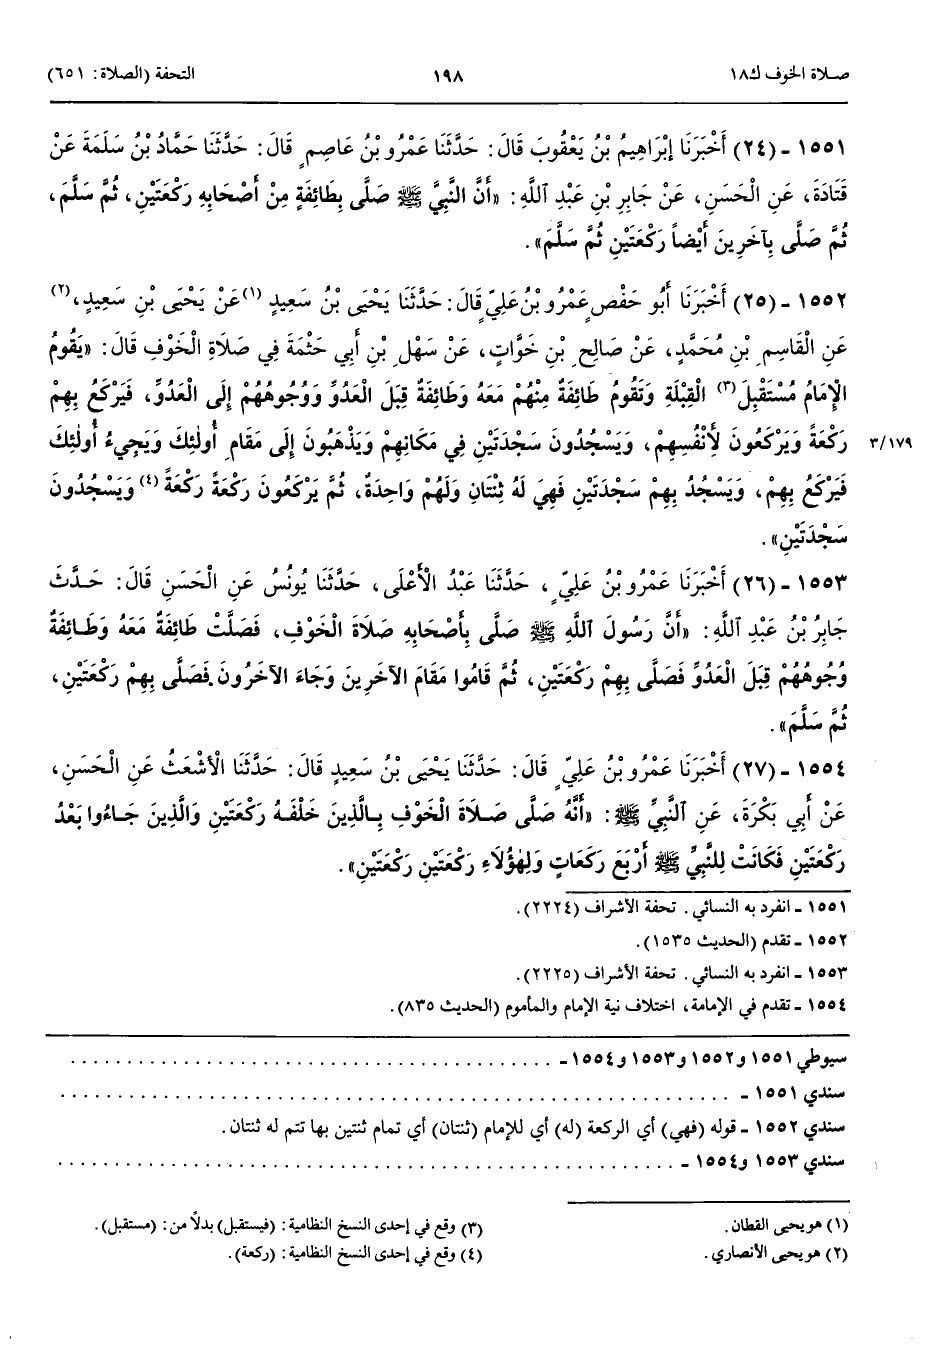 صلاة الخوف ك١٨
١٩٨
التحفة (الصلاة: ٦٥١)
١٥٥١ - (٢٤) أَخْبَرَنَا إِبْرَاهِيمُ بْنُ يَعْقُوبَ قَالَ: حَدَّثَنَا عَمْرُو بْنُ عَاصِمٍ قَالَ: حَدَّثَنَا حَمَّادُ بْنُ سَلَمَةَ عَنْ
قَتَادَةَ، عَنِ الْحَسَنِ، عَنْ جَابِرِ بْنِ عَبْدِ اللَّهِ: «أَنَّ النَّبِيَّ ﷺ صَلَّى بِطَائِفَةٍ مِنْ أَصْحَابِهِ رَكْعَتَيْنِ، ثُمَّ سَلَّمَ،
ثُمَّ صَلَّى بِآخَرِينَ أَيْضاً رَكْعَتَيْنِ ثُمَّ سَلَّمَ».
١٥٥٢ - (٢٥) أَخْبَرَنَا أَبُو حَفْصٍ عَمْرُو بْنُ عَلِيٍّ قَالَ: حَدَّثَنَا يَحْيَى بْنُ سَعِيدٍ (١) عَنْ يَحْيَى بْنِ سَعِيدٍ، (٢)
عَنِ الْقَاسِمِ بْنِ مُحَمَّدٍ، عَنْ صَالِحِ بْنِ خَوَّاتٍ، عَنْ سَهْلِ بْنِ أَبِي حَثْمَةَ فِي صَلَاةِ الْخَوْفِ قَالَ: «يَقُومُ
الْإِمَامُ مُسْتَقْبِلَ (٣) الْقِبْلَةِ وَتَقُومُ طَائِفَةٌ مِنْهُمْ مَعَهُ وَطَائِفَةٌ قِبَلَ الْعَدُوِّ وَوُجُوهُهُمْ إِلَى الْعَدُوِّ، فَيَرْكَعُ بِهِمْ
رَكْعَةً وَيَرْكَعُونَ لِأَنْفُسِهِمْ، وَيَسْجُدُونَ سَجْدَتَيْنِ فِي مَكَانِهِمْ وَيَذْهَبُونَ إِلَى مَقَامِ أُولَئِكَ وَيَجِيءُ أُولَئِكَ ٣/١٧٩
فَيَرْكَعُ بِهِمْ، وَيَسْجُدُ بِهِمْ سَجْدَتَيْنِ فَهِيَ لَهُ ثِنْتَانِ وَلَهُمْ وَاحِدَةٌ، ثُمَّ يَرْكَعُونَ رَكْعَةً رَكْعَةً (٤) وَيَسْجُدُونَ
سَجْدَتَيْنِ».
١٥٥٣ - (٢٦) أَخْبَرَنَا عَمْرُو بْنُ عَلِيٍّ، حَدَّثَنَا عَبْدُ الْأَعْلَى، حَدَّثَنَا يُونُسُ عَنِ الْحَسَنِ قَالَ: حَدَّثَ
جَابِرُ بْنُ عَبْدِ اللَّهِ: «أَنَّ رَسُولَ اللَّهِ ﷺ صَلَّى بِأَصْحَابِهِ صَلَاةَ الْخَوْفِ، فَصَلَّتْ طَائِفَةٌ مَعَهُ وَطَائِفَةٌ
وُجُوهُهُمْ قِبَلَ الْعَدُوِّ فَصَلَّى بِهِمْ رَكْعَتَيْنِ، ثُمَّ قَامُوا مَقَامَ الْآخَرِينَ وَجَاءَ الْآخَرُونَ فَصَلَّى بِهِمْ رَكْعَتَيْنِ،
ثُمَّ سَلَّمَ».
١٥٥٤ - (٢٧) أَخْبَرَنَا عَمْرُو بْنُ عَلِيٍّ قَالَ: حَدَّثَنَا يَحْيَى بْنُ سَعِيدٍ قَالَ: حَدَّثَنَا الْأَشْعَثُ عَنِ الْحَسَنِ،
عَنْ أَبِي بَكْرَةَ، عَنِ النَّبِيِّ ﷺ: «أَنَّهُ صَلَّى صَلَاةَ الْخَوْفِ بِالَّذِينَ خَلْفَهُ رَكْعَتَيْنِ وَالَّذِينَ جَاءُوا بَعْدُ
رَكْعَتَيْنِ فَكَانَتْ لِلنَّبِيِّ ﷺ أَرْبَعَ رَكَعَاتٍ وَلِهَؤُلَاءِ رَكْعَتَيْنِ رَكْعَتَيْنِ».
١٥٥١ - انفرد به النسائي. تحفة الأشراف (٢٢٢٤).
١٥٥٢ - تقدم (الحديث ١٥٣٥).
١٥٥٣ - انفرد به النسائي. تحفة الأشراف (٢٢٢٥).
١٥٥٤ - تقدم في الإمامة، اختلاف نية الإمام والمأموم (الحديث ٨٣٥).
سيوطي ١٥٥١ و١٥٥٢ و١٥٥٣ و١٥٥٤ - . . . . . . . . . . . . . . . . . . . .
سندي ١٥٥١ - . . . . . . . . . . . . . . . . . . . .
سندي ١٥٥٢ - قوله (فهي) أي الركعة (له) أي للإمام (ثنتان) أي تمام ثنتين بها تتم له ثنتان.
سندي ١٥٥٣ و١٥٥٤ - . . . . . . . . . . . . . . . . . . . .
(١) هو يحيى القطان.
(٢) هو يحيى الأنصاري.
(٣) وقع في إحدى النسخ النظامية: (فيستقبل) بدلاً من: (مستقبل).
(٤) وقع في إحدى النسخ النظامية: (ركعة).